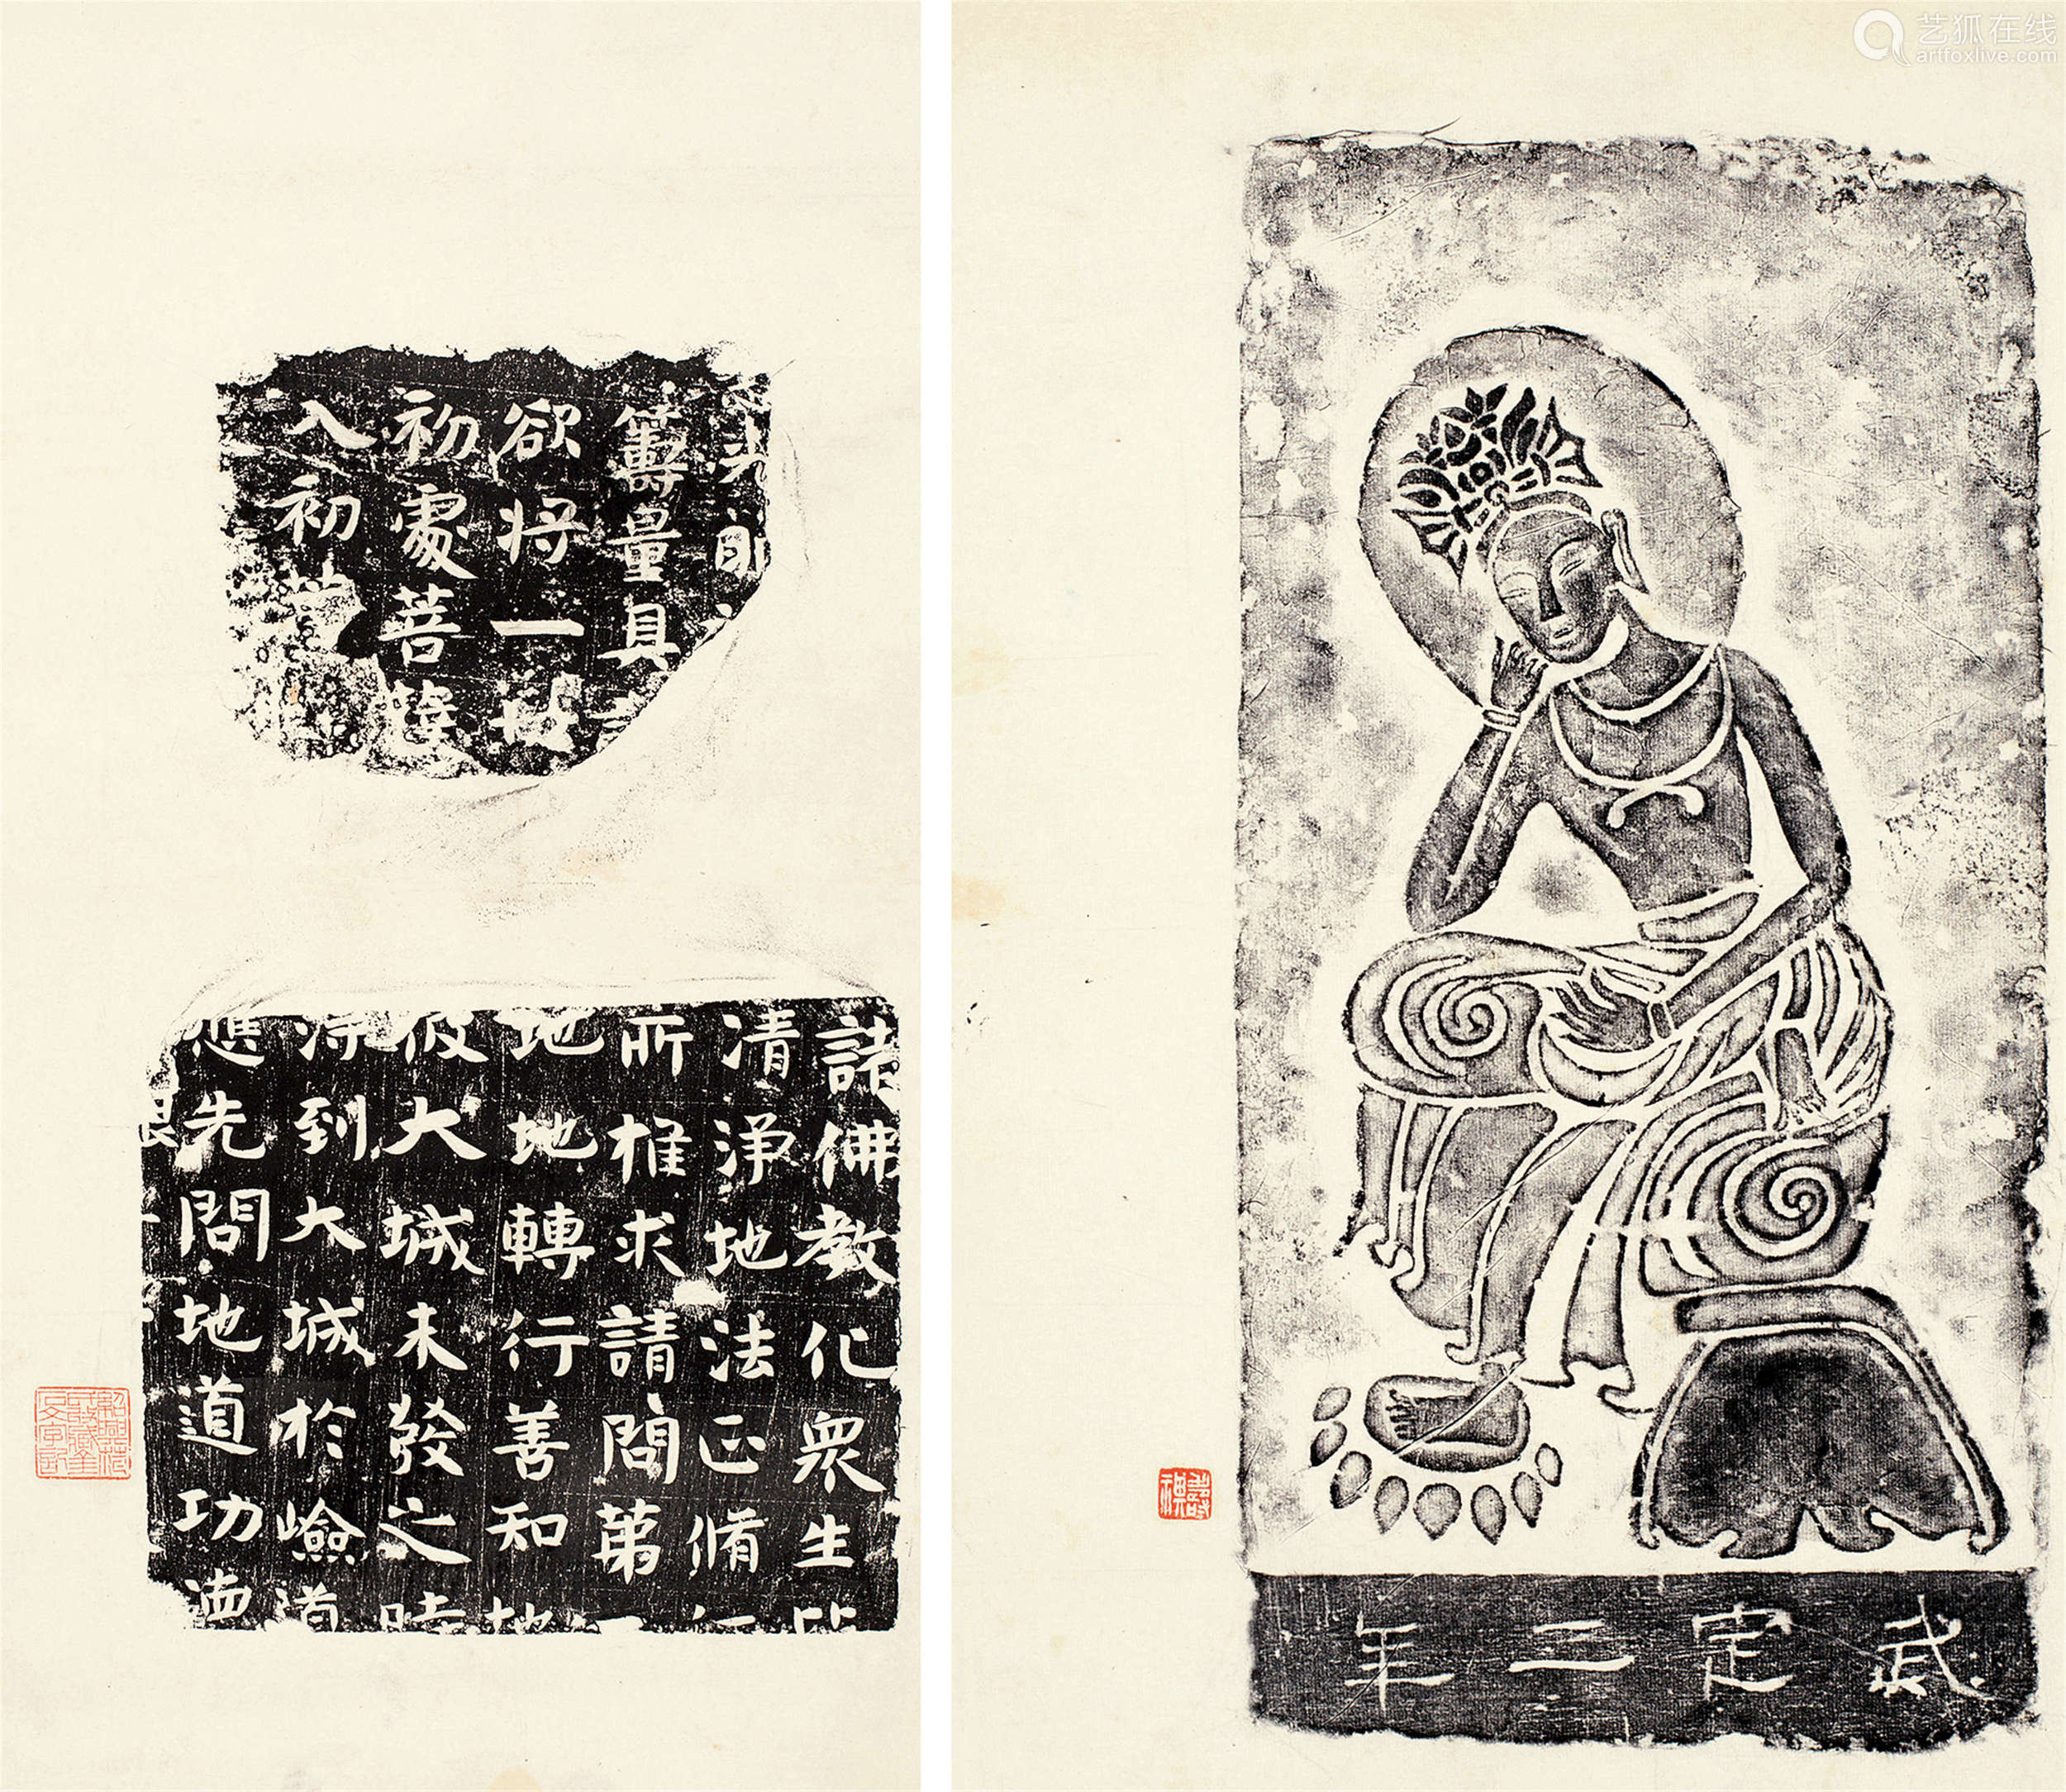 艺狐在线
artfoxlive.com
頭
籌量具
欲將一
初處菩薩
入初
諸佛教化衆生
清淨地法正脩行
所推求請問第一
地地轉行善知地
彼大城未發之時
得到大城於嶮道
應先問地道功德
武定二年